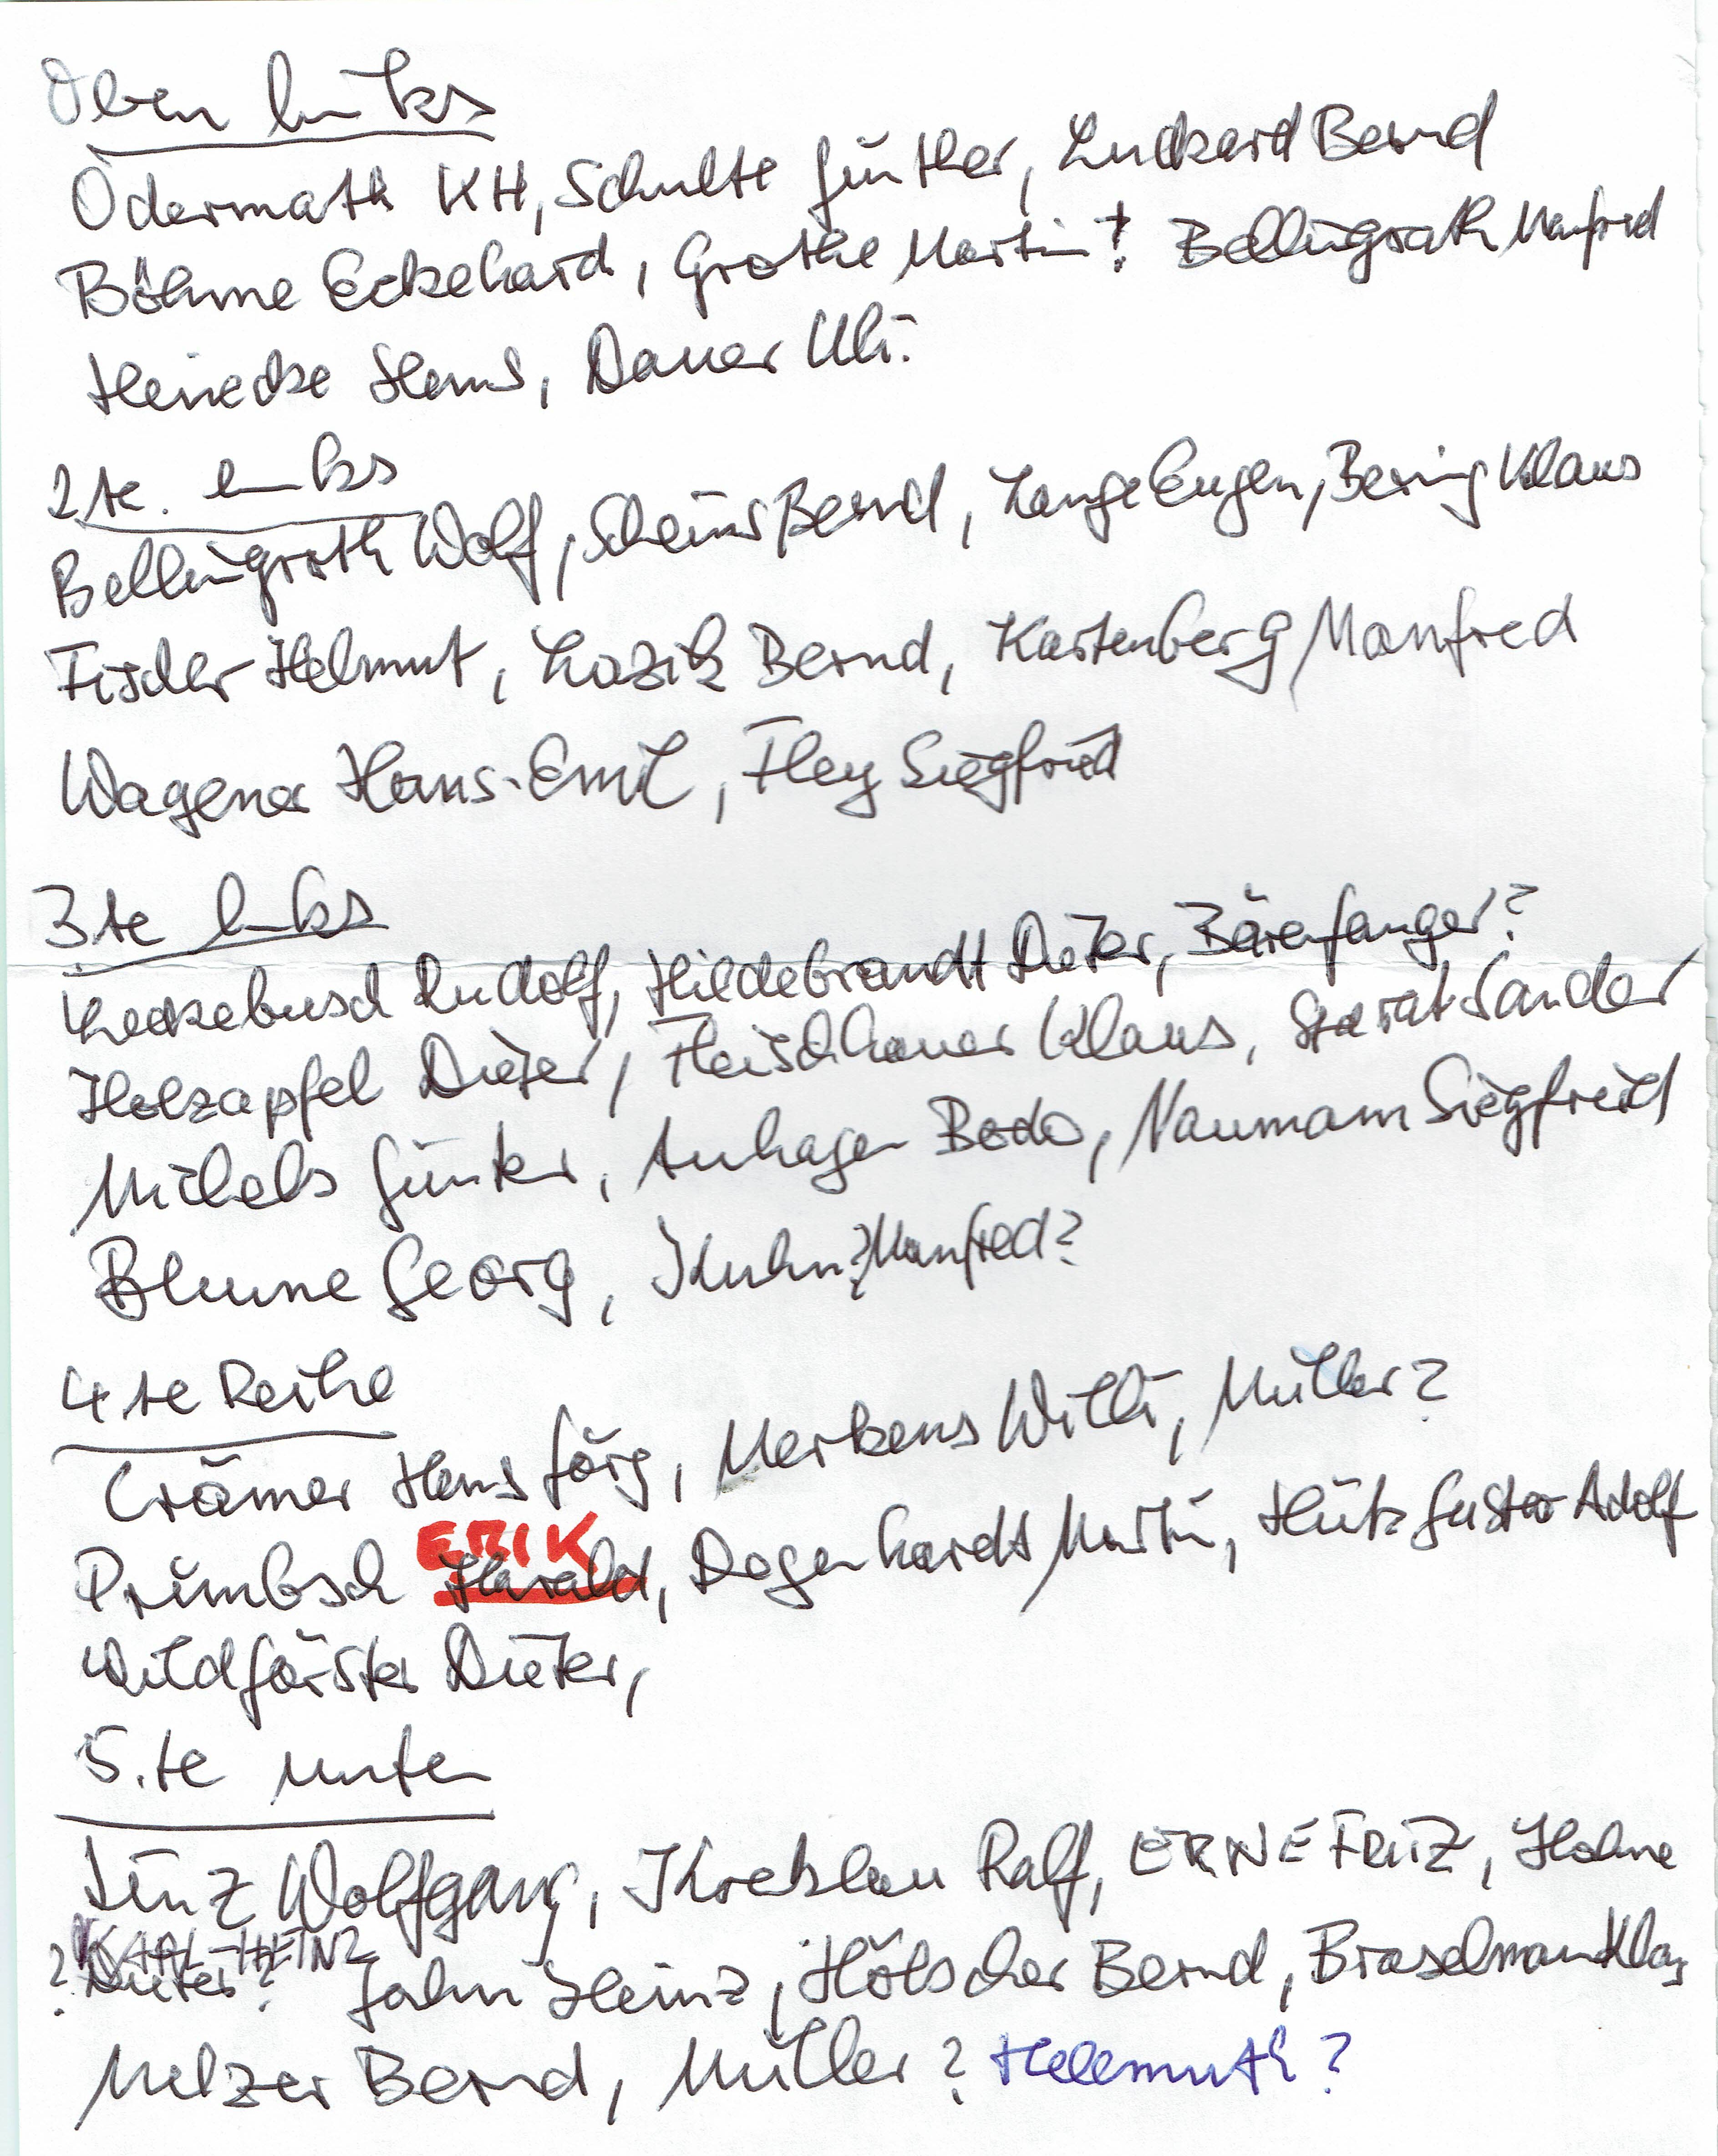 Oben links
Odermath KH, Schulte Günther, Luckard Bernd
Böhme Eckehard, Grothe Martin † Bellingrath Manfred
Heinecke Hans, Dauer Uli
2te. links
Bellingrath Wolf, Bernd, Lange Eugen, Bering Klaus
Fischer Helmut, Lazik Bernd, Kartenberg Manfred
Wagener Hans-Emil, Fley Siegfried
3te links
Leckebusch Rudolf, Hildebrandt Dieter, Bärenfänger?
Holzapfel Dieter, Fleischhauer Klaus, Sander
Michels Günter, Anhagen Bodo, Naumann Siegfried
Blume Georg, Kuhn? Manfred?
4te Reihe
Crämer Hans Jörg, Merkens Willi, Müller?
ERIK
Primbsch Harald, Degenhardt Martin, Hütz Gustav Adolf
Wildförster Dieter,
5.te unten
Linz Wolfgang, Kretzlau Ralf, ERNE FRITZ, Hohne
KARL-HEINZ
? Dieter? Jahn Heinz, Hölscher Bernd, Braselmann Klaus
Melzer Bernd, Müller? Hellmuth?